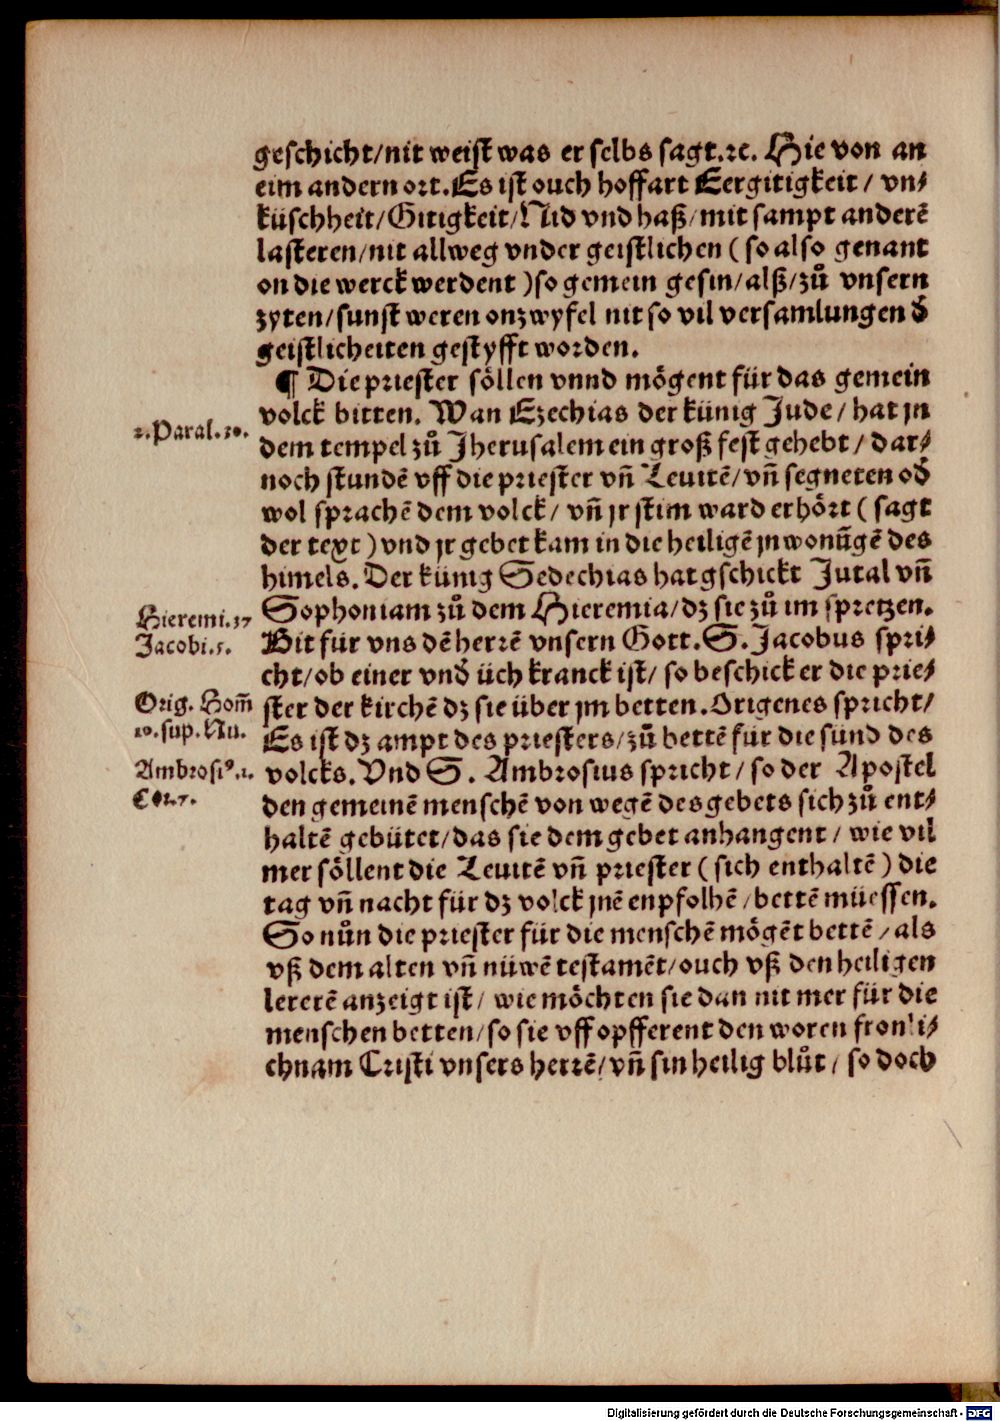 geschicht/nit weist was er selbs sagt.ꝛc. Hie von an
eim andern ort. Es ist ouch hoffart Eergitigkeit / vn⸗
küschheit/Gitigkeit/Nid vnd haß/mit sampt anderē
lasteren/nit allweg vnder geistlichen ( so also genant
on die werck werdent )so gemein gesin/alß/zů vnsern
zyten/sunst weren onzwyfel nit so vil versamlungen d̕
geistlicheiten gestyfft worden.
¶ Die priester söllen vnnd mögent für das gemein
volck bitten. Wan Ezechias der künig Jude / hat jn
2.Paral.30.
dem tempel zů Jherusalem ein groß fest gehebt / dar⸗
noch stundē vff die priester vñ Leuitē/vñ segneten od̕
wol sprachē dem volck / vñ jr stim ward erhört ( sagt
der text ) vnd jr gebet kam in die heiligē jnwonūgē des
himels. Der künig Sedechias hat gschickt Jutal vñ
Sophoniam zů dem Hieremia/dz sie zů im spretzen.
Hieremi.37
Bit für vns dē herrē vnsern Gott. S. Jacobus spri⸗
Jacobi.5.
cht/ob einer vnd̕ üch kranck ist/ so beschick er die prie⸗
ster der kirchē dz sie über jm betten. Origenes spricht/
Orig. Hom̄
10.sup.Nu.
Es ist dz ampt des priesters/zů bettē für die sünd des
volcks. Vnd S. Ambrosius spricht / so der Apostel
Ambrosiꝰ.1.
Cor.7.
den gemeinē menschē von wegē des gebets sich zů ent⸗
haltē gebütet/das sie dem gebet anhangent / wie vil
mer söllent die Leuitē vñ priester ( sich enthaltē ) die
tag vñ nacht für dz volck jnē enpfolhē / bettē müessen.
So nůn die priester für die menschē mögēt bettē / als
vß dem alten vñ nüwē testamēt/ouch vß den heiligen
lererē anzeigt ist / wie möchten sie dan nit mer für die
menschen betten/so sie vff opfferent den woren fronli⸗
chnam Cristi vnsers herrē/vñ sin heilig blůt / so doch
Digitalisierung gefördert durch die Deutsche Forschungsgemeinschaft - DFG